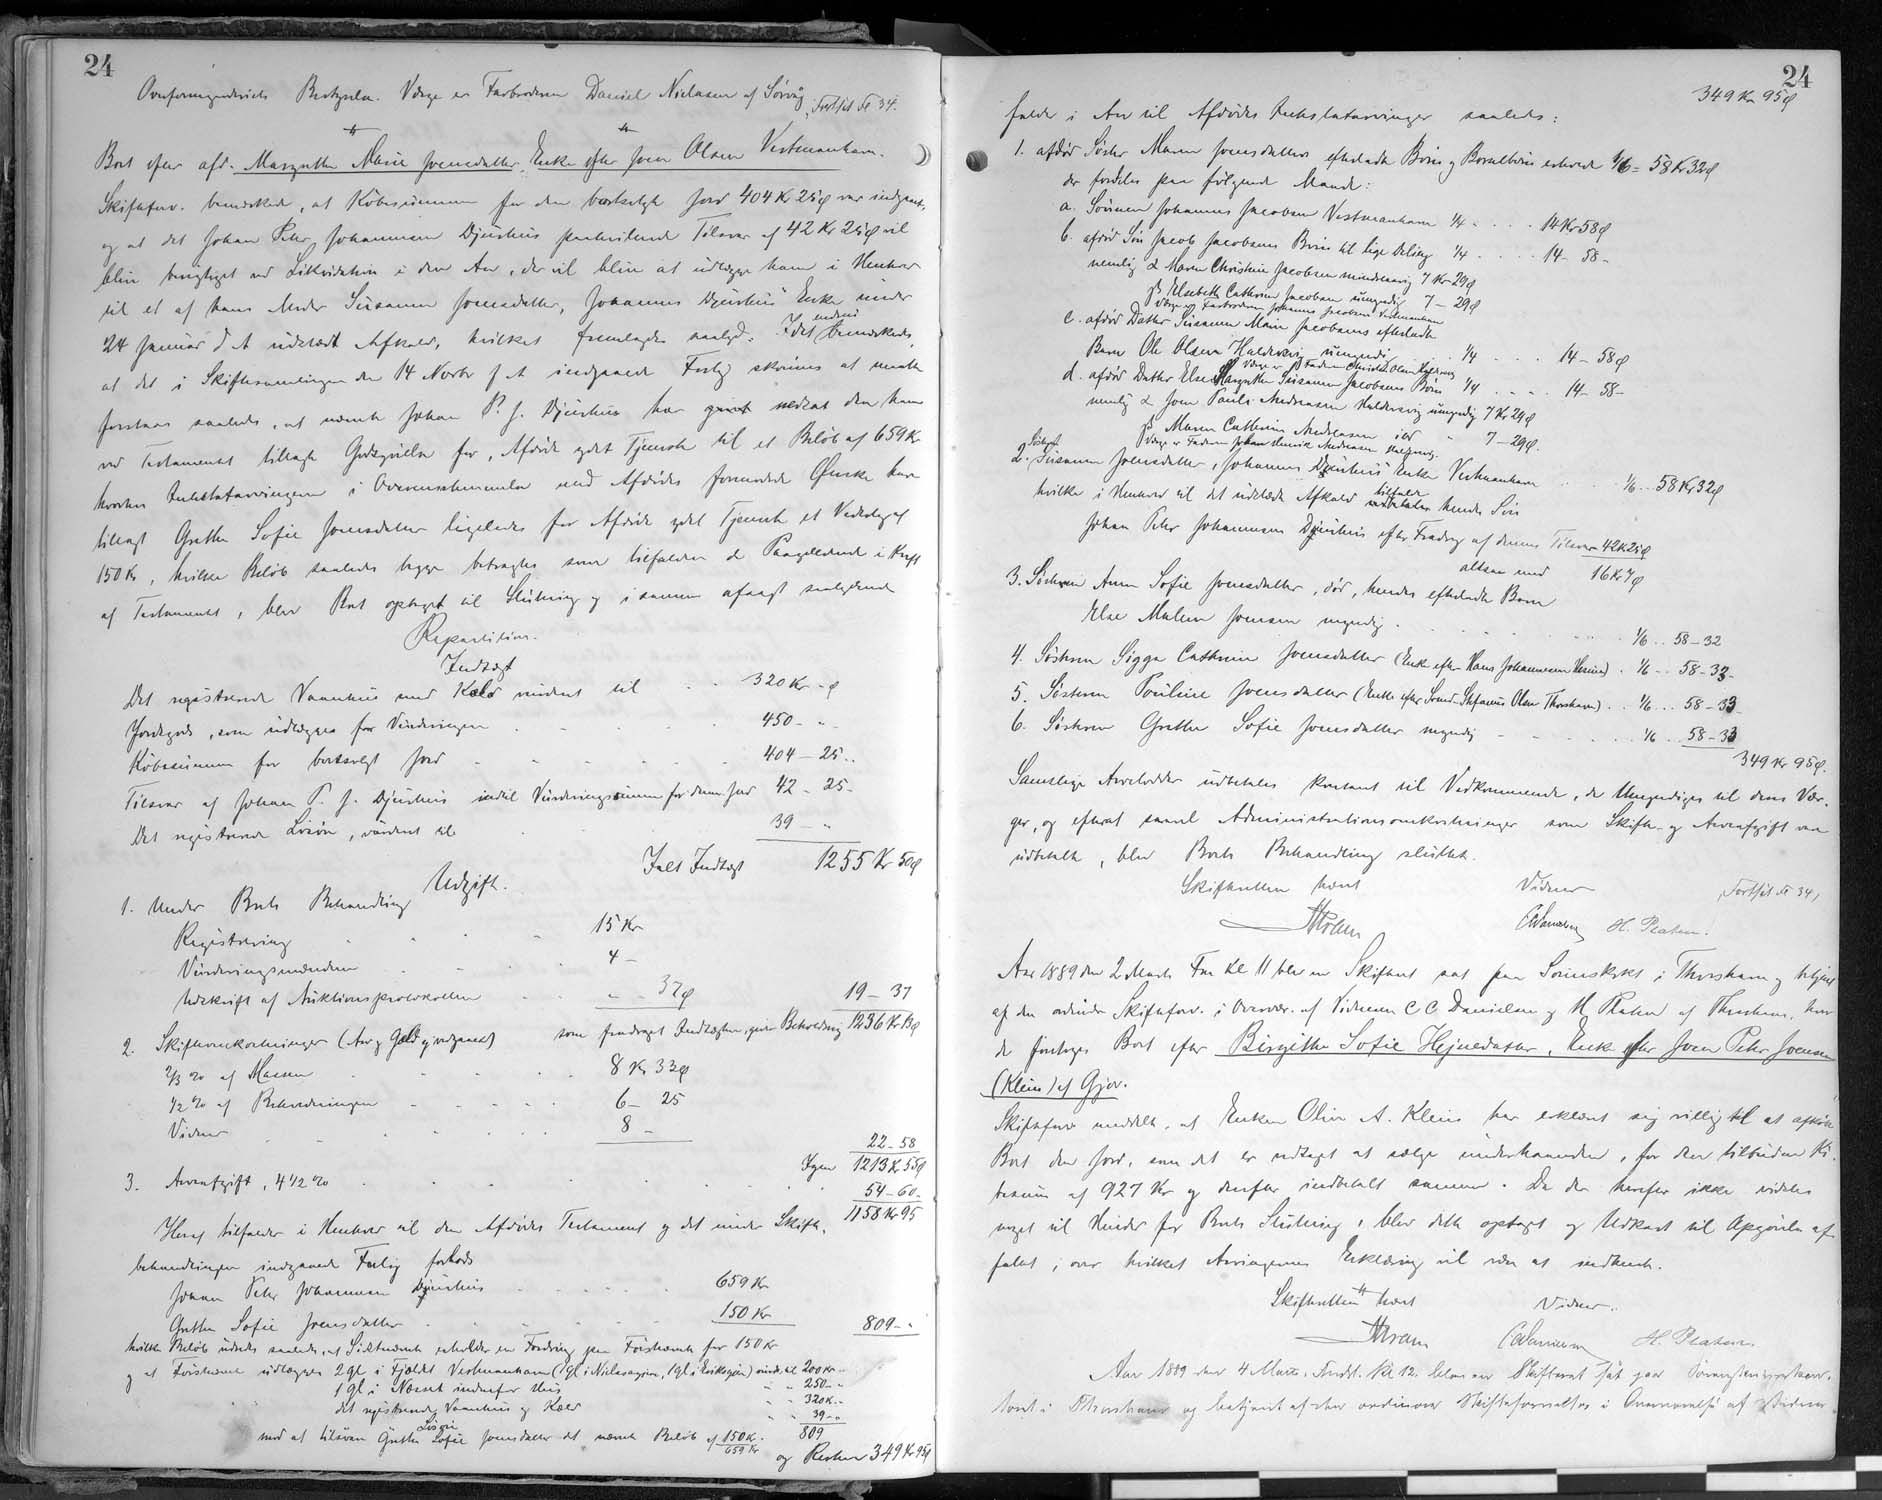 24
Overformynderiets Bestyrelse. Værge er Farbroderen Daniel Niclasen af Sørvåg
Fortsat Fo 34.
Boet efter afd. Margrethe Marie Joensdatter, Enke efter Joen Olsen Vestmanhavn.
Skifteforv. bemærkede, at Købesummen for den bortsolgte Jord 404 Kr 25 ø var indgaaet,
og at det Johan Peter Johannesen Djurhus paahvilende Tilsvar af 42 Kr 25 ø vil
blive berigtiget ved Likvidation i den Arv, der vil blive at udlægge ham i Henhold
til et af hans Moder Susanne Joensdatter, Johannes Djurhus' Enke under
24 Januar d. A udstedt Afkald, hvilket fremlagdes vedlagt. Idet endnu bemærkedes,
at det i Skiftesamlingen den 14 Novbr f. A indgaaede Forlig skønnes at maatte
forstaas saaledes, at nævnte Johan P. J. Djurhus har givet nedsat den ham
ved Testamentet tillagte Godtgjørelse for, Afdøde ydet Tjeneste til et Beløb af 659 Kr
hvorhos Intestatarvingerne i Overensstemmelse med Afdødes formodede Ønske har
tillagt Grethe Sofie Joensdatter ligeledes for Afdøde ydet Tjeneste et Vederlag af
150 Kr, hvilke Beløb saaledes begge betragtes som tilfaldne de Paagældende i Kraft
af Testamentet, blev Boet optaget til Slutning og i samme afsagt saalydende
Repartition.
Indtægt
Det registrerede Vaanhus med Kælder vurderet til 320 Kr - ø
Jordegods, som udlægges for Vurderingen 450 - "
Købesummen for bortsolgt Jord 404 - 25 -
Tilsvar af Johan P. J. Djurhus indtil Vurderingssummen for denne Jord 42 - 25 -
Det registrerede Løsøre, vurderet til 39 - "
Ialt Indtægt 1255 Kr 50 ø
Udgift.
1. Under Boets Behandling
Registrering 15 Kr
Vurderingsmændene 4 -
Udskrift af Auktionsprotokollen " 37 ø
19 - 37
som fradraget Indtægten, giver Beholdning 1236 Kr 13 ø
2. Skifteomkostninger (Arv og Gæld vedgaaet)
2/3 % af Massen 8 Kr 33 ø
1/2 % af Beholdningen 6 - 25
Vidner 8 -
22 - 58
Igen 1213 Kr 55 ø
3. Arveafgift, 4 1/2 % 54 - 60 -
1158 Kr 95
Heraf tilfalder i Henhold til den Afdødes Testament og det under Skifte-
behandlingen indgaaede Forlig forlods
Johan Peter Johannesen Djurhus 659 Kr
Grethe Sofie Joensdatter 150 Kr
809 - "
hvilke Beløb udredes saaledes, at Sidstnævnte erholder en Fordring paa Førstnævnte for 150 Kr
og at Førstnævnte udlægges 2 gl i Fjældt Vestmanhavn (1 gl i Nilsasgjøn, 1 gl i Eriksgjøn) vurd. til 200 Kr -
1 gl i Næsset indenfor Hus " " 250 - "
det registrerede Vaanhus og Kæld " " 320 K. -
Løsøre " " 39 - "
809
med at tilsvare Grethe Sofie Joensdatter det nævnte Beløb af 150 K.
659 Kr
og Resten 349 Kr 95 ø
24
349 Kr 95 ø
falder i Arv til Afdødes Intestatarvinger saaledes:
1. afdød Søster Maren Joensdatters efterladte Børn og Børnebørn erholde 1/6 = 58 Kr 32 ø
der fordeles paa følgende Maade:
a. Sønnen Johannes Jacobsen Vestmanhavn 1/4 . . . 14 Kr 58 ø
b. afdød Søn Jacob Jacobsens Børn til lige Deling 1/4 . . . 14 - 58 -
nemlig α Maren Christine Jacobsen mindreaarig 7 Kr 29 ø
β Elsebeth Cathrine Jacobsen umyndig 7 - 29 ø
Værge er Farbroderen Johannes Jacobsen Vestmanhavn
c. afdød Datter Susanne Marie Jacobsens efterladte
Barn Ole Olsen Haldersvig umyndig 1/4 . . . 14 - 58 ø
Værge er Faderen Olsen Haldersvig
d. afdød Datter Else Margrethe Susanne Jacobsens Børn 1/4 . . . 14 - 58 -
nemlig α Joen Pauli Andreasen Haldersvig umyndig 7 Kr 29 ø
β Maren Cathrine Andreasen ibd " 7 - 29 ø.
Værge er Faderen Johan Henrik Andreasen Haldersvig.
2. Søsteren Susanne Joensdatter, Johannes Djurhus' Enke Vestmanhavn 1/6 . . 58 Kr 32 ø
hvilke i Henhold til det udstedte Afkald tilfalde hendes Søn
Johan Peter Johannesen Djurhus efter Fradrag af dennes Tilsvar 42 K 25 ø
altsaa med 16 Kr 7 ø
3. Søsteren Anne Sofie Joensdatter, død, hendes efterladte Barn
Else Malene Joensen myndig 1/6 . . 58 - 32
4. Søsteren Sigga Cathrine Joensdatter (Enke efter Hans Johannesen ) . 1/6 . . 58 - 33 -
5. Søsteren Pouline Joensdatter (Enke efter Stefanus Olsen Thorshavn) . . 1/6 . . . 58 - 33
6. Søsteren Grethe Sofie Joensdatter myndig 1/6 . . 58 - 33
349 Kr 95 ø.
Samtlige Arvelodder udbetales kontant til Vedkommende, de Umyndiges til deres Vær-
ger, og efterat saavel Administrationsomkostninger som Skifte- og Arveafgift var
udbetalt, blev Boets Behandling sluttet.
Skifteretten hævet
Vidner
Fortsat Fo 34,
CCDanielsen H. Platen.
Aar 1889 den 2 Marts Fm Kl 11 blev en Skifteret sat paa Sorenskr.kt i Thorshavn og betjent
af den ordinære Skifteforv. i Overvær. af Vidnerne C C Danielsen og H. Platen af Thorshavn, hvor
da foretoges Boet efter Birgithe Sofie Hejnedatter, Enke efter Joen Peter Joensen
(Klein) af Gjov.
Skifteforv meddelte, at Enken Olive A. Klein har erklæret sig villig til at afkøbe
Boet den Jord, som det er vedtaget at sælge underhaanden, for den tilbudne Kø-
besum af 927 Kr og derefter indbetalt summen. Da der herefter ikke vides
noget til Hinder for Boets Slutning, blev dette optaget og Udkast til Opgjørelse af-
fattet, over hvilket Arvingernes Erklæring vil være at indhente.
Skifteretten hævet
Vidner.
CCDanielsen H. Platen
Aar 1889 den 4 Marts, Kl. 12. blev en Skifteret sat paa Sorenskriverkon-
toret i Thorshavn og betjent af den ordinære Skifteforvalter i Overværelse af Vidner